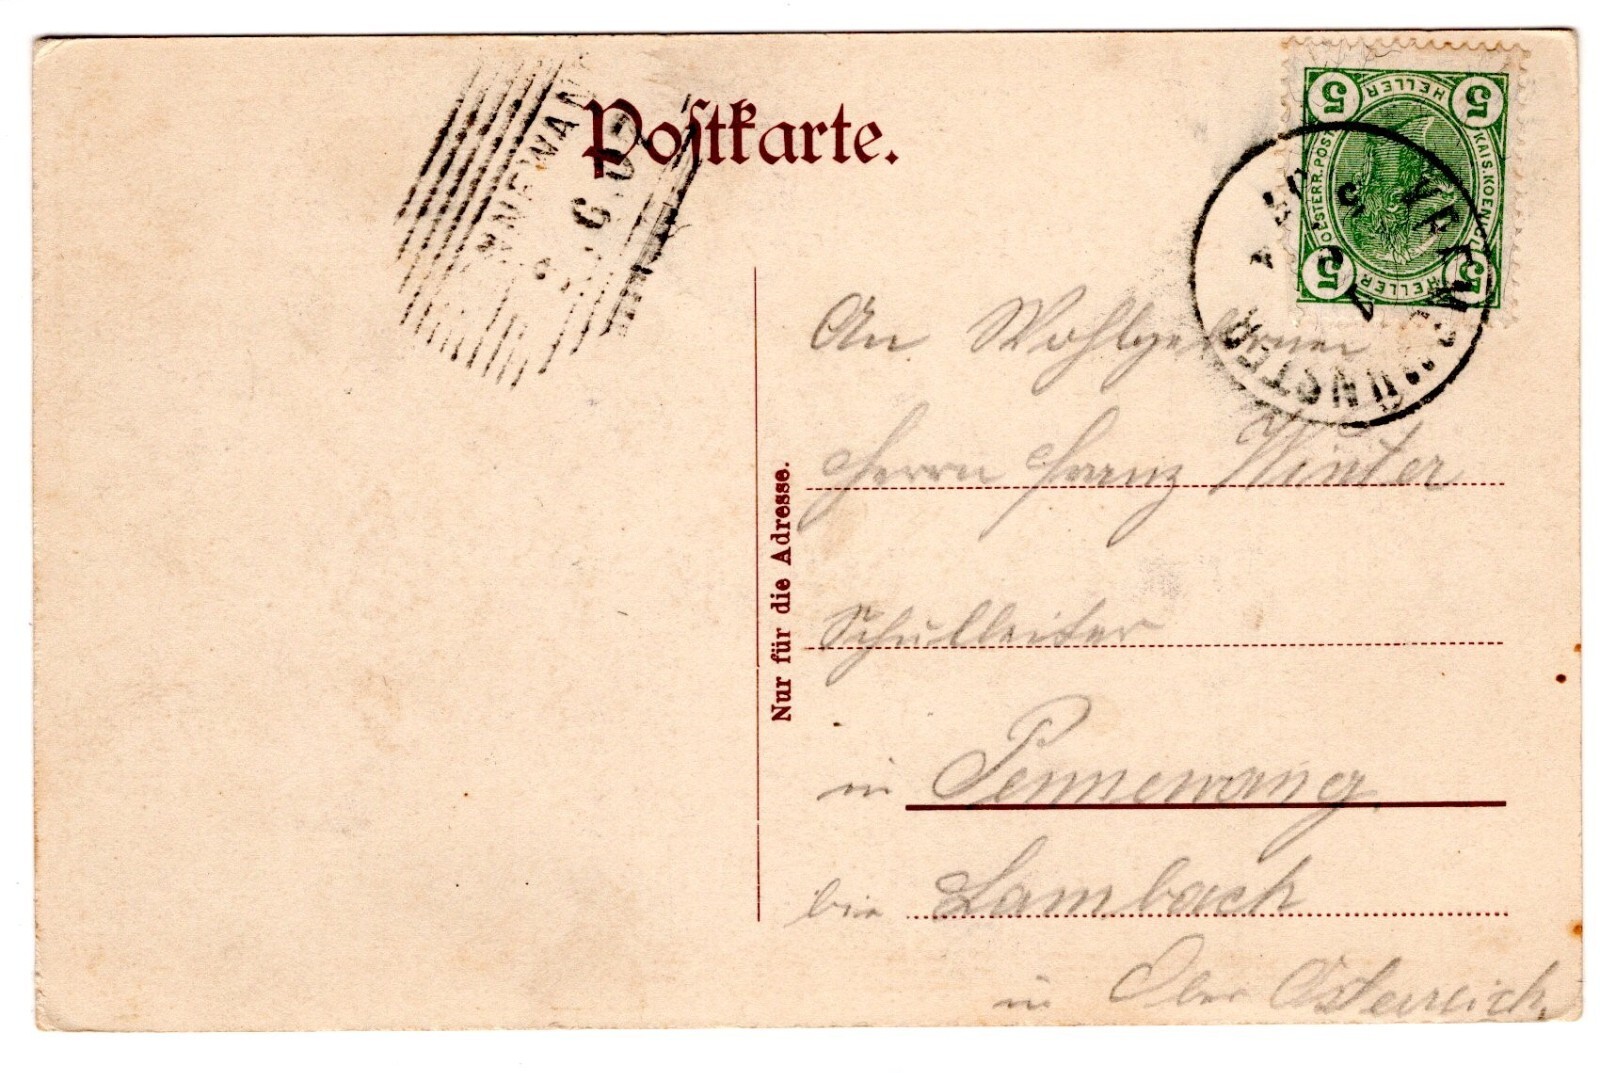 Postkarte.
5 HELLER 5
KAIS. KOENIGL.
OESTERR. POST
5 HELLER 5
Nur für die Adresse.
An Wohlgebornen
Herrn Franz Winter
Schulleiter
in Pennewang.
bei Lambach
in Ober Österreich.